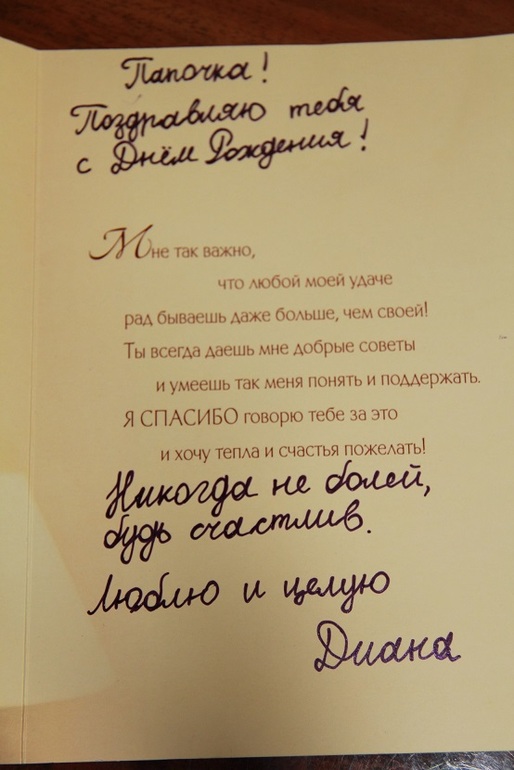 Папочка!
Поздравляю тебя
с Днём Рождения!
Мне так важно,
что любой моей удаче
рад бываешь даже больше, чем своей!
Ты всегда даешь мне добрые советы
и умеешь так меня понять и поддержать.
Я СПАСИБО говорю тебе за это
и хочу тепла и счастья пожелать!
Никогда не болей,
будь счастлив.
Люблю и целую
Диана